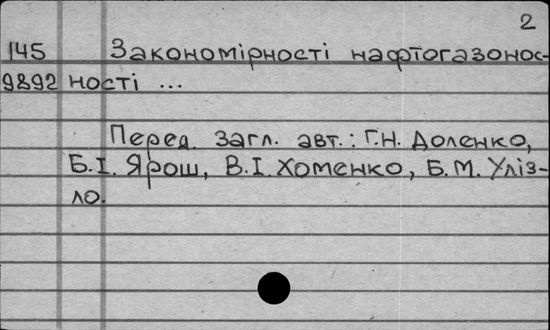 2
145 Закономірності нафтогазонос-
9892 ності ...
Перед загл. авт.: Г.Н. Доленко,
Б.І. Ярош, В.І. Хоменко, Б.М. Уліз-
ло.